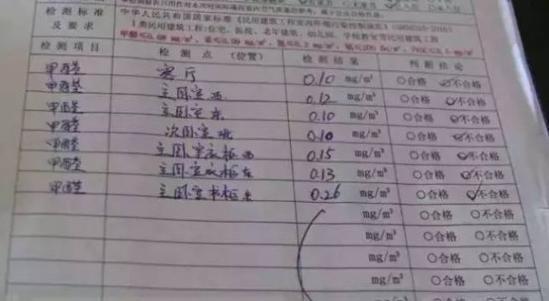 检测标准
及要求
中华人民共和国国家标准《民用建筑工程室内环境污染控制
Ⅰ类民用建筑工程:住宅、医院、老年建筑、幼儿园、学校教室等民用建筑工程
检测项目 检测点(位置) 检测结果 判断结论
甲醛 客厅 0.10 mg/m³ ○合格 ☑不合格
甲醛 主卧室西 0.12 mg/m³ ○合格 ☑不合格
甲醛 主卧室东 0.10 mg/m³ ○合格 ☑不合格
甲醛 次卧室 0.10 mg/m³ ○合格 ☑不合格
甲醛 主卧室衣柜西 0.15 mg/m³ ○合格 ☑不合格
甲醛 主卧室衣柜东 0.13 mg/m³ ○合格 ☑不合格
甲醛 主卧室书柜 0.26 mg/m³ ○合格 ☑不合格
mg/m³ ○合格 ○不合格
mg/m³ ○合格 ○不合格
mg/m³ ○合格 ○不合格
mg/m³ ○合格 ○不合格